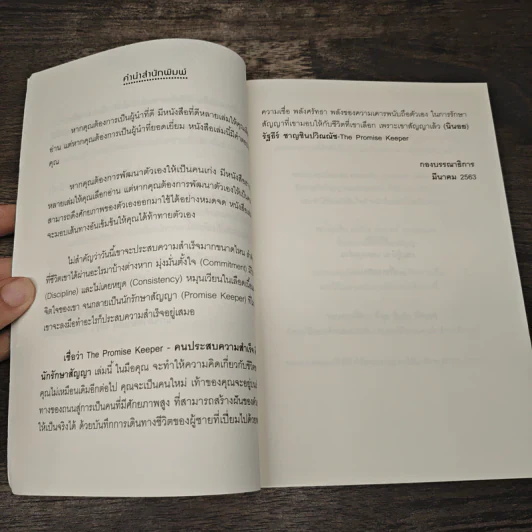 คำนำสำนักพิมพ์
หากคุณต้องการเป็นผู้นำที่ดี มีหนังสือที่ดีหลายเล่มให้คุณ
อ่าน แต่หากคุณต้องการเป็นผู้นำที่ยอดเยี่ยม หนังสือเล่มนี้มี
คุณ
หากคุณต้องการพัฒนาตัวเองให้เป็นคนเก่ง มีหนังสือ
หลายเล่มให้คุณเลือกอ่าน แต่หากคุณต้องการพัฒนาตัวเองให้เป็น
สามารถดึงศักยภาพของตัวเองออกมาใช้ได้อย่างหมดจด หนังสือ
จะมอบเส้นทางอันเข้มข้นให้คุณได้ท้าทายตัวเอง
ไม่สำคัญว่าวันนี้เขาจะประสบความสำเร็จมากขนาดไหน
ที่ชีวิตเขาได้ผ่านอะไรมาบ้างต่างหาก มุ่งมั่นตั้งใจ (Commitment)
(Discipline) และไม่เคยหยุด (Consistency) หมุนเวียนในเลือดเนื้อ
จิตใจของเขา จนกลายเป็นนักรักษาสัญญา (Promise Keeper)
เขาจะลงมือทำอะไรก็ประสบความสำเร็จอยู่เสมอ
เชื่อว่า The Promise Keeper - คนประสบความสำเร็จ
นักรักษาสัญญา เล่มนี้ ในมือคุณ จะทำให้ความคิดเกี่ยวกับชีวิต
คุณไม่เหมือนเดิมอีกต่อไป คุณจะเป็นคนใหม่ เท้าของคุณจะอยู่
ทางของถนนสู่การเป็นคนที่มีศักยภาพสูง ที่สามารถสร้างฝันของ
ให้เป็นจริงได้ ด้วยบันทึกการเดินทางชีวิตของผู้ชายที่เปี่ยมไปด้วย
ความเชื่อ พลังศรัทธา พลังของความเคารพนับถือตัวเอง ในการรักษา
สัญญาที่เขามอบให้กับชีวิตที่เขาเลือก เพราะเขาสัญญาแล้ว
รัฐธีร์ ชาญชินปวิณณัช-The Promise Keeper
กองบรรณาธิการ
มีนาคม 2563